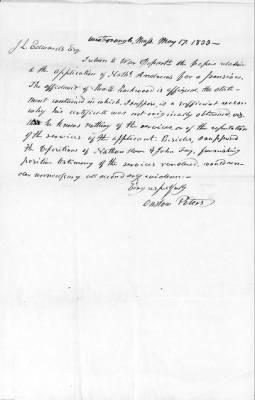 Westborough, Mass. May 17. 1838 —
J. L. Edwards Esq.
I return to War Depart. the papers relative
to the application of Nath'l Andrews for a pension.
The affidavit of Lockwood is affixed, the state-
ment contained in which, I suppose, is a sufficient reason
why his certificate was not originally obtained, viz.
that he knows nothing of the services, or of the reputation
of the services of the applicant. Besides, I supposed
the depositions of Nathan & John Fay, furnishing
positive testimony of the services rendered, would ren-
der unnecessary all secondary evidence.—
Very respectfully
Onslow Peters